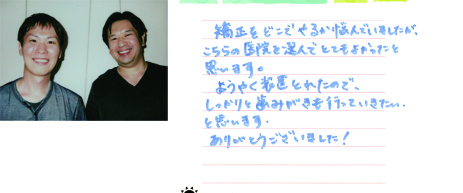 矯正をどこでやるか悩んでいましたが、
こちらの医院を選んでとてもよかったと
思います。
ようやく装置とれたので、
しっかりと歯みがきも行っていきたい
と思います。
ありがとうございました！